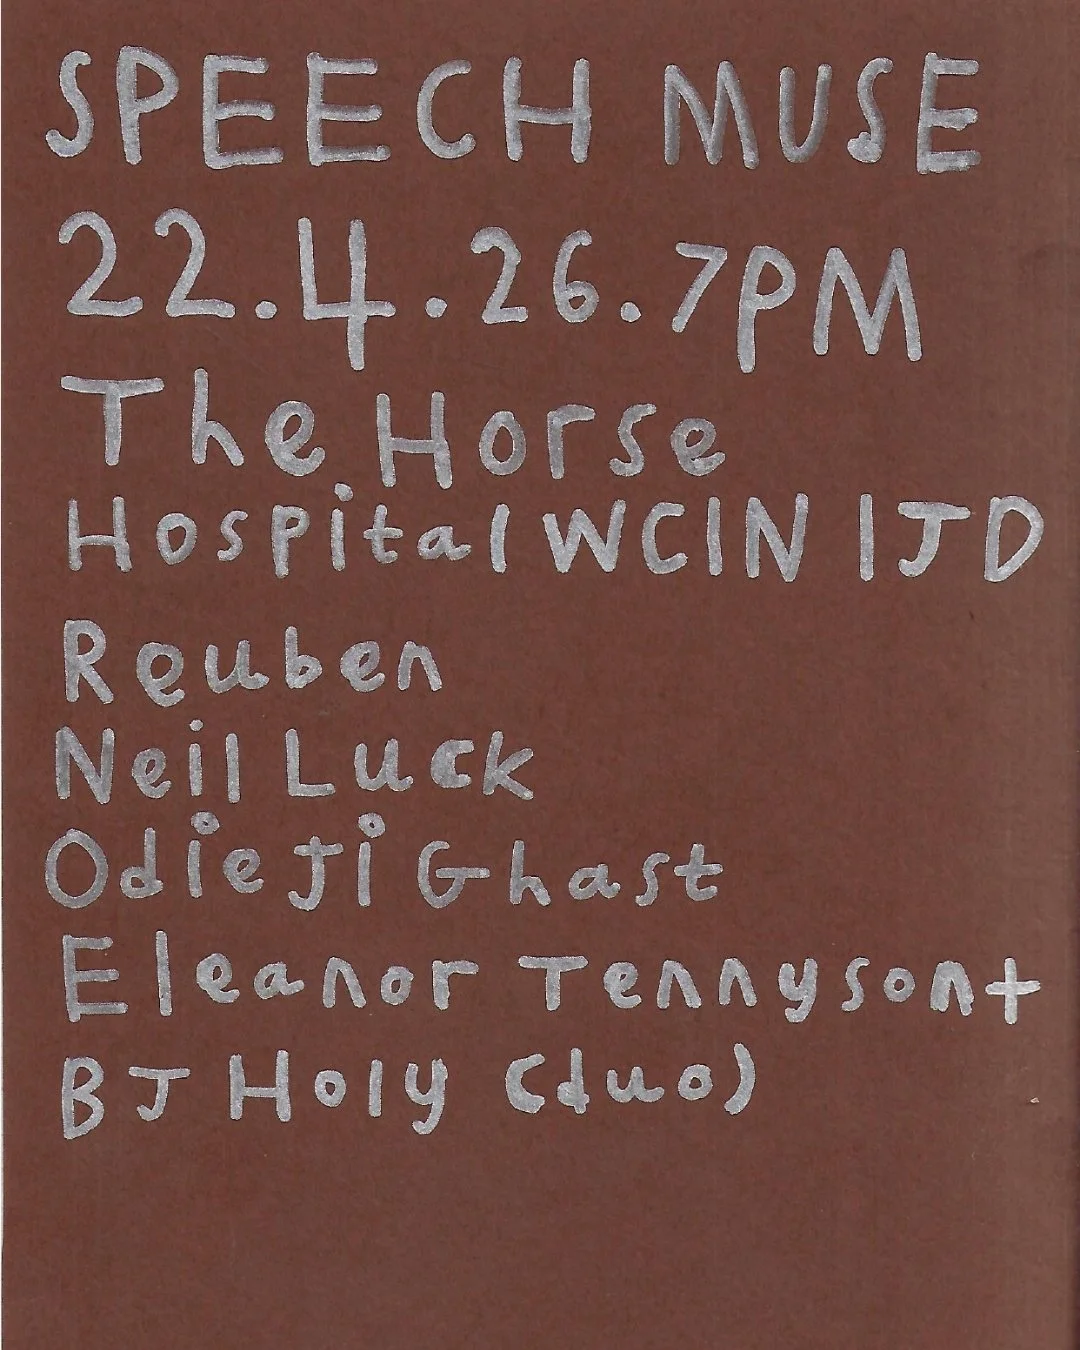 SPEECH MUSE
22.4.26.7PM
The Horse
Hospital WC1N 1JD
Reuben
Neil Luck
Odie Ji Ghast
Eleanor Tennyson +
BJ Holy (duo)